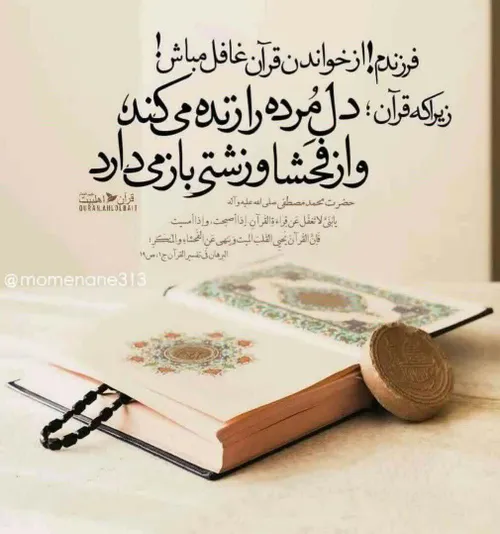 فرزندم! از خواندن قرآن غافل مباش!
زیرا که قرآن؛ دل مُرده را زنده می کند،
و از فَحشا و زشتی باز می دارد
حضرت محمد مصطفی صلی الله علیه و آله
قرآن اهلبیت
QURAILAHLOLBAIT
یابنی لا تغفل عن قراءة القرآن إذا أصبحت، و إذا أمسیت
فإنّ القرآن یحیی القلب المیت و ینهی عن الفحشاء والمنکر؛
البرهان فی تفسیر القرآن ج۱، ص۱۹
@momenane313